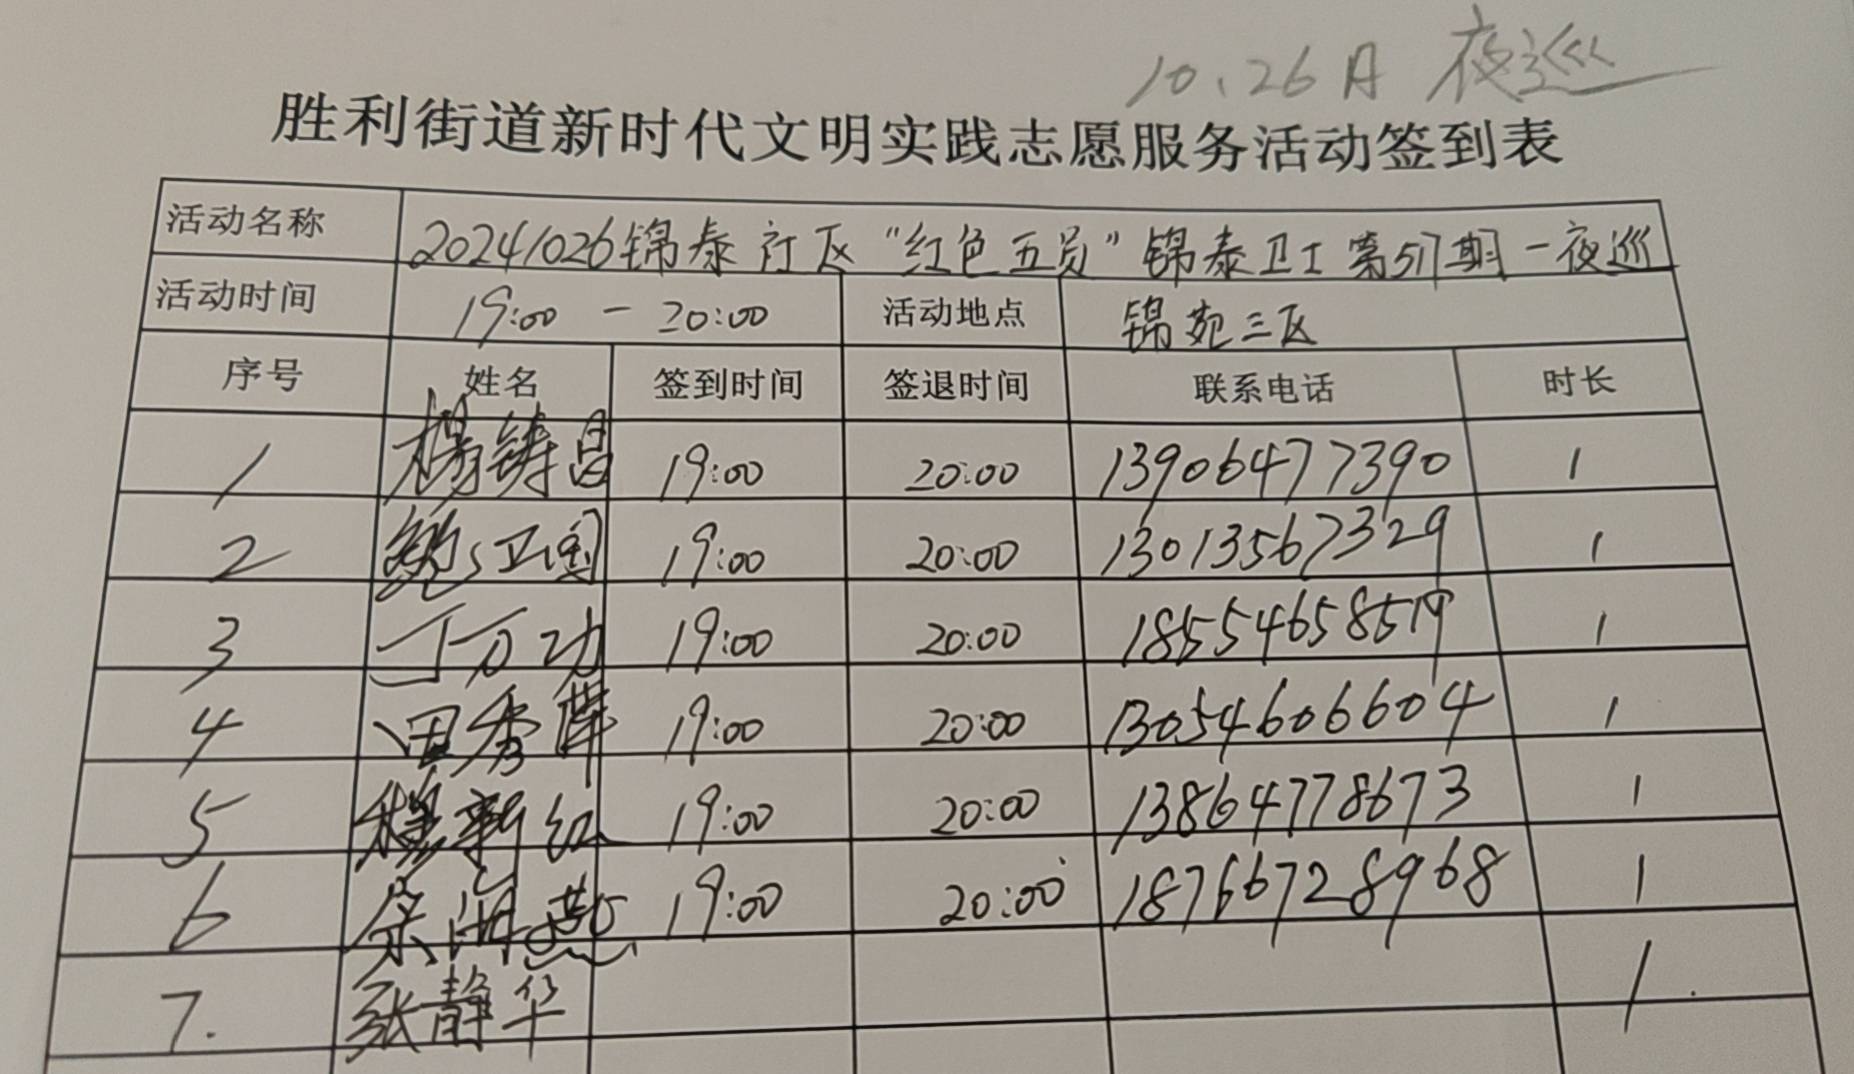 10.26日 夜巡
胜利街道新时代文明实践志愿服务活动签到表
活动名称 20241026锦泰社区“红色五员”锦泰卫士第517期-夜巡
活动时间 19:00 - 20:00 活动地点 锦苑三区
序号 姓名 签到时间 签退时间 联系电话 时长
1 杨铸昌 19:00 20:00 13906477390 1
2 鲍卫国 19:00 20:00 13013567329 1
3 丁万功 19:00 20:00 18554658519 1
4 田秀萍 19:00 20:00 13054606604 1
5 穆新红 19:00 20:00 13864778673 1
6 19:00 20:00 18766728968 1
7. 张静华 1